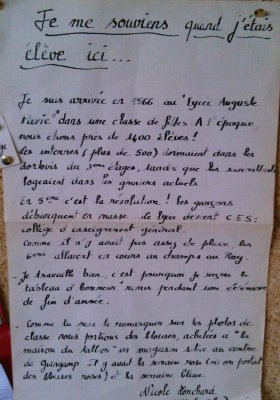 Je me souviens quand j'étais
élève ici...
Je suis arrivée en 1966 au "Lycée Auguste
Pavie" dans une classe de filles. A l'époque
nous étions près de 1400 élèves !
des internes (plus de 500) dormaient dans les
dortoirs du 3ème étages, tandis que les surveillants
logeaient dans les greniers actuels
En 3ème c'est la révolution ! les garçons
débarquent en masse. le lycée devient C.E.S :
collège d'enseignement général.
Comme il n'y avait pas assez de place, les
6ème allaient en cours au champs au Roy.
- Je travaille bien, c'est pourquoi je reçois le
tableau d'honneur remis pendant une cérémonie
de fin d'année.
- Comme tu peux le remarquer sur les photos de
classe nous portions des blouses, achetées à "la
maison du tablier" un magasin situé au centre
de Guingamp. Il y avait la semaine rose (où on portait
des blouses roses) et la semaine bleue.
Nicole